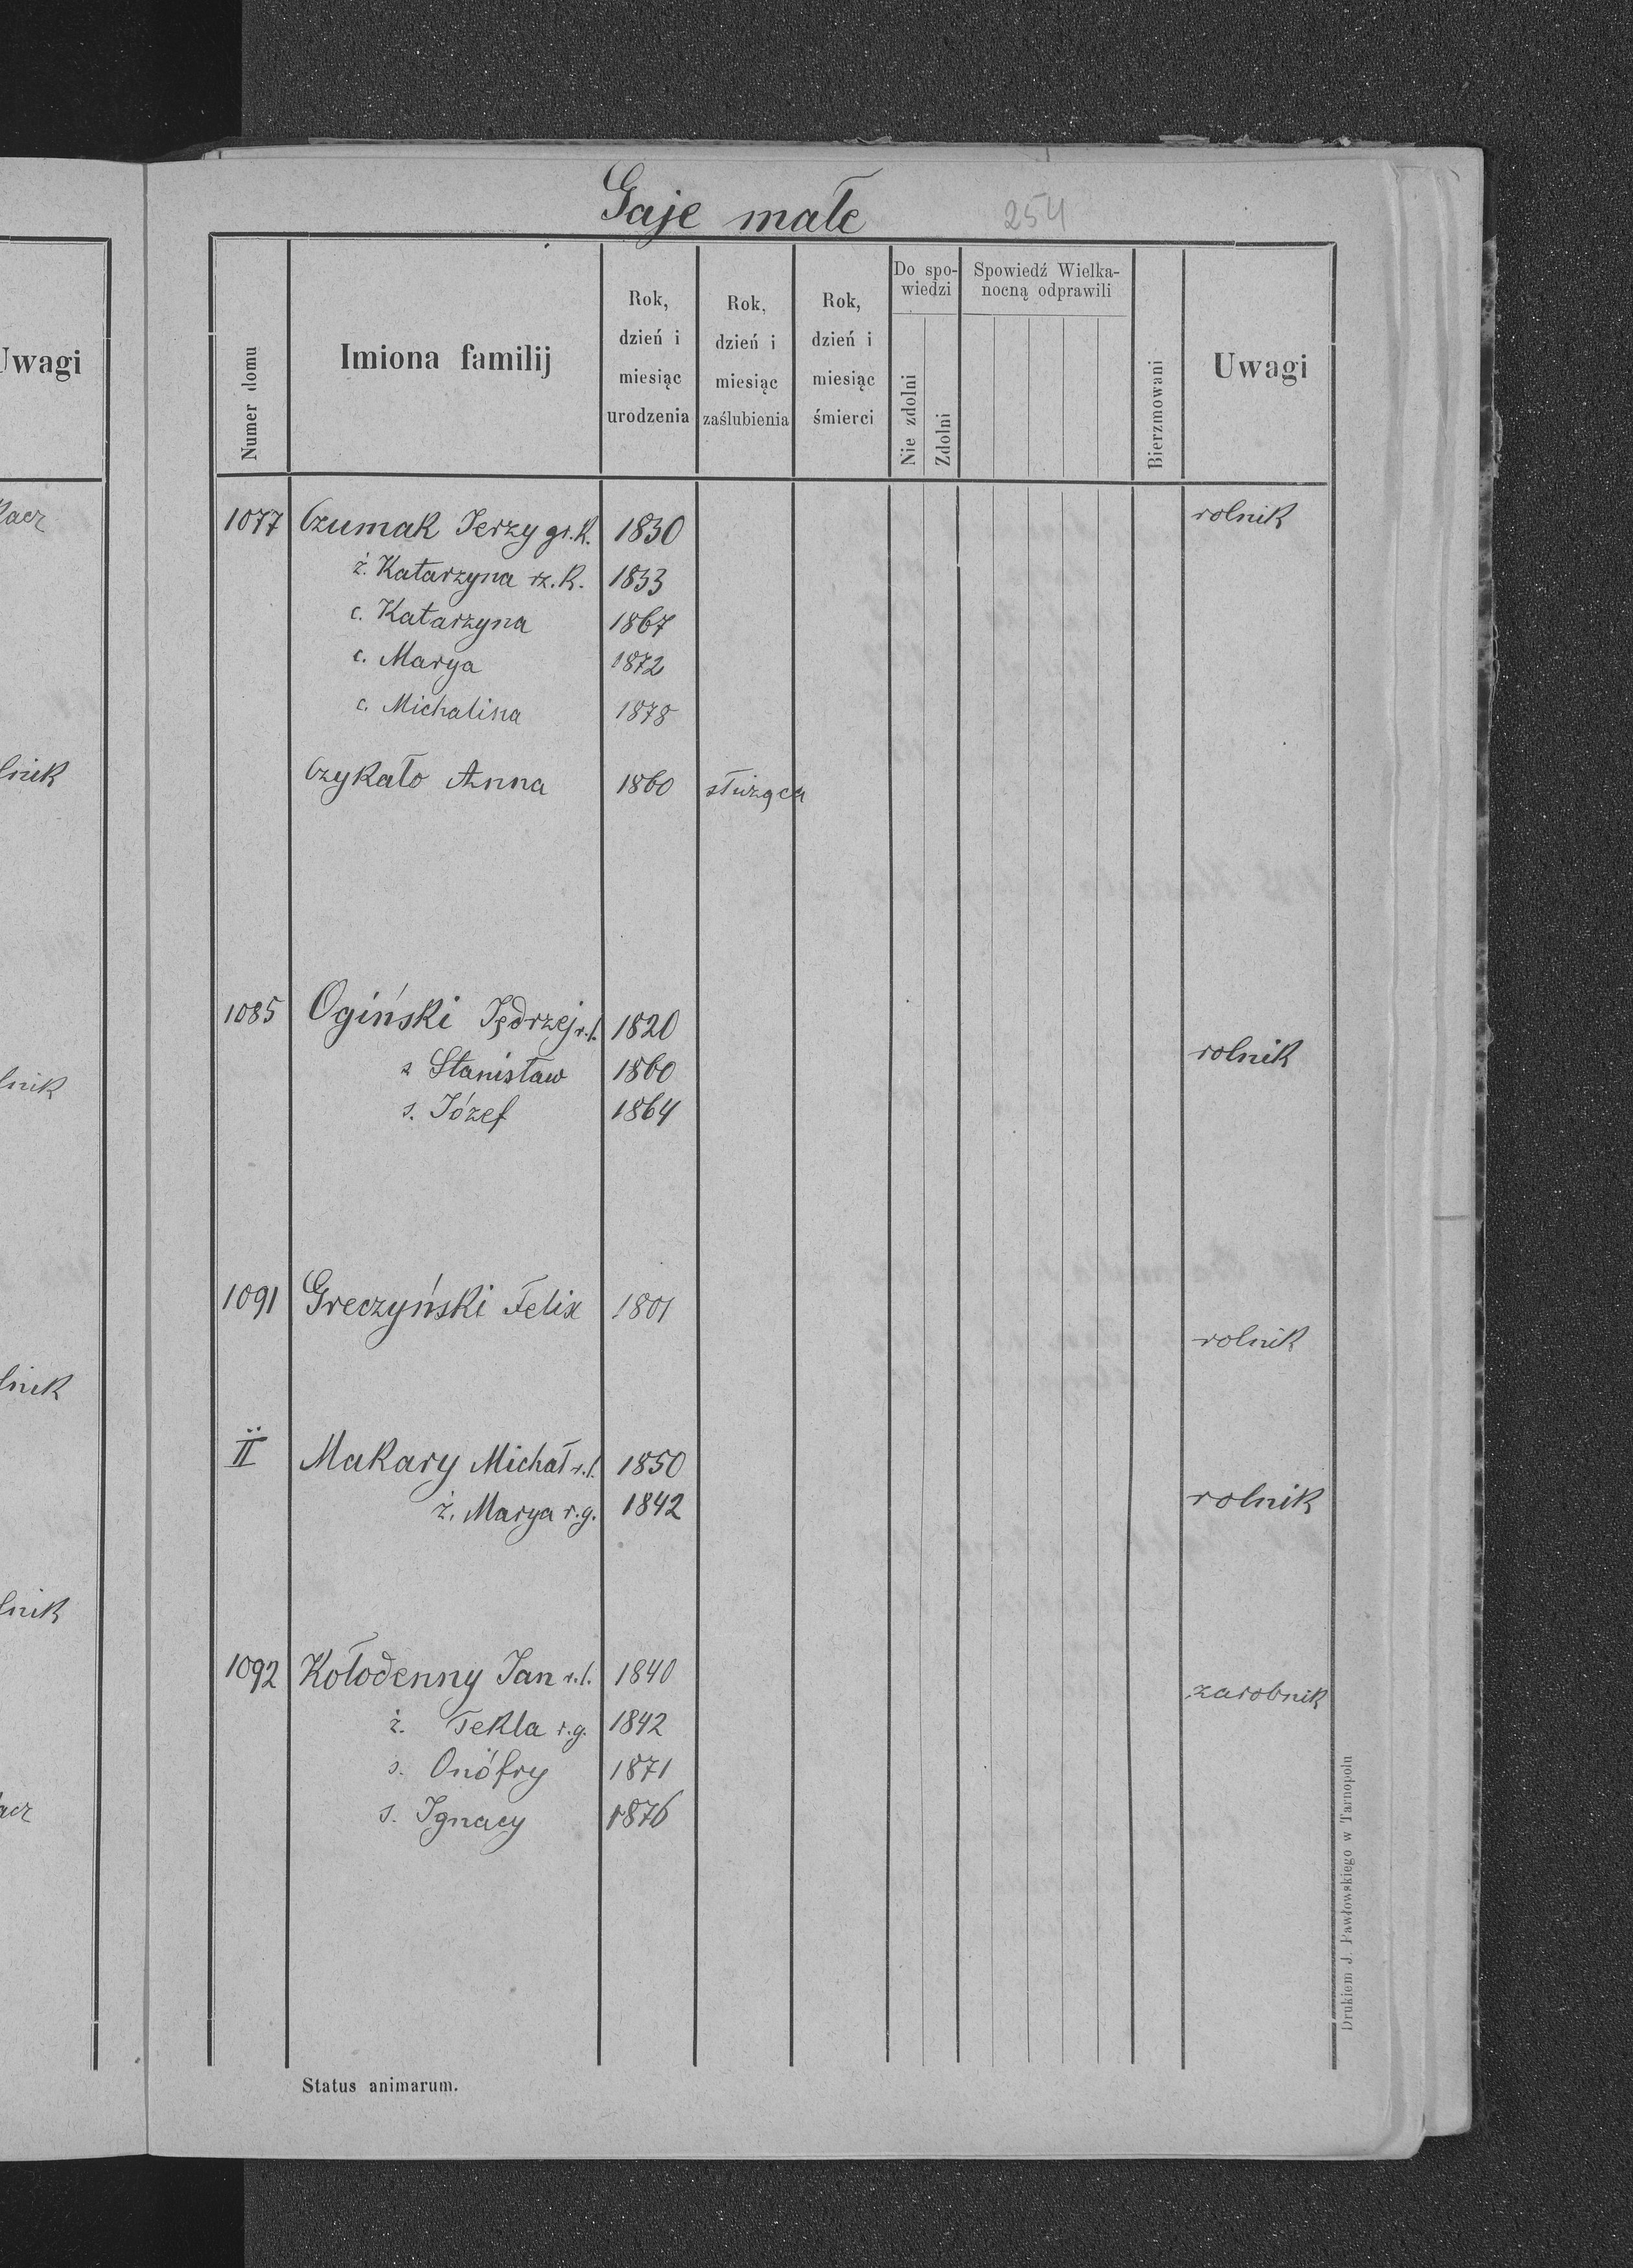 Gaje małe 254
Uwagi
Numer domu
Imiona familij
Rok, dzień i miesiąc urodzenia
Rok, dzień i miesiąc zaślubienia
Rok, dzień i miesiąc śmierci
Do spo-
wiedzi
Nie zdolni
Zdolni
Spowiedź Wielka-
nocną odprawili
Bierzmowani
Uwagi
1077 Czumak Jerzy gr. k. 1830 rolnik
ż. Katarzyna rz. k. 1833
c. Katarzyna 1867
c. Marya 1872
c. Michalina 1878
Czykało Anna 1860 służąca
1085 Ogiński Jędrzej r. l. 1820
s Stanisław 1860 rolnik
s. Józef 1864
1091 Greczyński Felix 1801
rolnik
II Makary Michał r. l. 1850
ż. Marya r. g. 1842 rolnik
1092 Kołodenny Jan r. l. 1840 zarobnik
ż. Tekla r. g. 1842
s. Onófry 1871
s. Ignacy 1876
Status animarum.
Drukiem J. Pawłowskiego w Tarnopolu